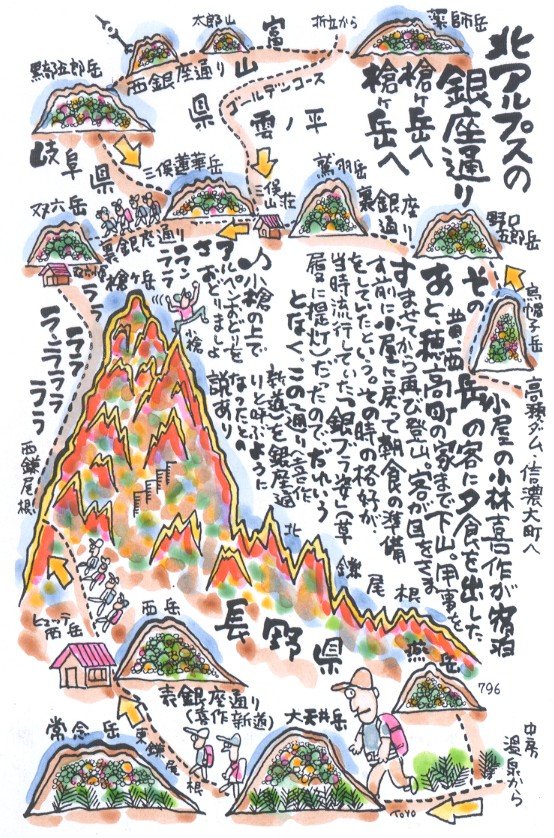 北アルプスの
銀座通り
槍ヶ岳へ
槍ヶ岳へ
薬師岳
折立から
太郎山
富
山
県
西銀座通り
黒部五郎岳
岐阜県
ゴールデンコース
雲ノ平
三俣蓮華岳
三俣
山荘
鷲羽岳
裏銀座通り
野口
五郎岳
烏帽子岳
高瀬ダム・信濃大町へ
双六岳
裏銀座通り
槍ヶ岳
その昔、西岳小屋の小林喜作が宿泊
の客に夕食を出した
あと、穂高町の家まで下山。用事を
すませてから再び登山。客が目をさま
す前に小屋に戻って朝食の準備
をしていたという。その時の格好が
当時流行していた「銀ブラ姿」(草
履に提灯)だったので、だれいう
となく、この通り(喜作
新道)を銀座通
りと呼ぶように
なったとの
説あり
♪小槍の上で
アルペンおどりを
さあ おどりましょ
ラン
ララ
ラララ
ランラララ
ラララ
槍
西鎌尾根
北
鎌
尾
根
長野県
ヒュッテ
西岳
西岳
燕岳
796
表銀座通り
(喜作新道)
大天井岳
常念岳
東鎌尾
根
中房
温泉から
TOYO